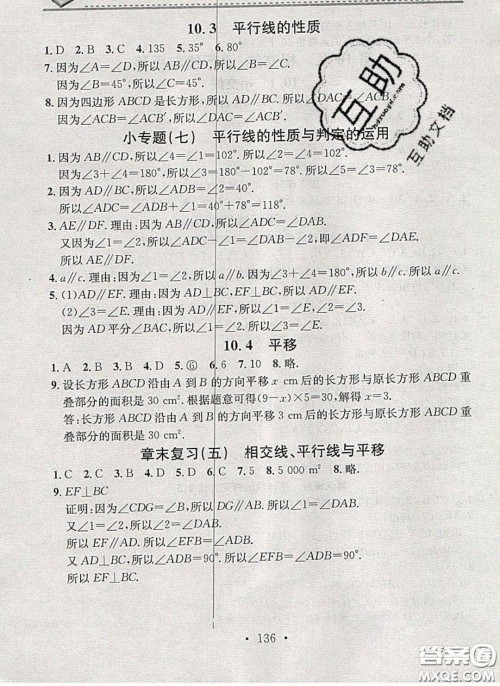 10.3 平行线的性质
1. D 2. B 3. C 4. 135 5. 35° 6. 80°
7. 因为∠A=∠D,所以AB∥CD.所以∠B=∠C.
因为∠B=45°,所以∠C=45°.
8. 因为四边形ABCD是长方形,所以AD∥BC.所以∠DAC=∠ACB.
因为∠ACB=∠ACB′,所以∠DAC=∠ACB′.
小专题(七) 平行线的性质与判定的运用
1. 因为AB∥CD,所以∠4=∠1=102°.
因为∠3+∠4=180°,所以∠3=180°-102°=78°.
2. 因为AB∥CD,所以∠ADF=∠2=40°.
所以∠ADC=∠ADF+∠2=40°+78°=118°.
3. AE∥DF.理由:因为AB∥CD,所以∠ADC=∠DAB.
又因为∠1=∠2,所以∠ADC-∠1=∠DAB-∠2,即∠ADF=∠DAE.
所以AE∥DF.
4. a∥c.理由:因为∠1=∠2,所以a∥b.因为∠3+∠4=180°,所以b∥c.所以a∥c.
5. (1)AD∥EF.理由:因为AD⊥BC,EF⊥BC,所以AD∥EF.
(2)∠3=∠E.理由:因为AD∥EF,所以∠1=∠3,∠2=∠E.
因为AD平分∠BAC,所以∠1=∠2.所以∠3=∠E.
10.4 平移
1. A 2. B 3. B 4. D 5. Ⓖ 6. 6 7. 10 8. 略.
9. 设长方形ABCD沿由A到B的方向平移x cm后的长方形与原长方形ABCD重
叠部分的面积是30 cm².根据题意可得(9-x)×5=30,解得x=3.
答:长方形ABCD沿由A到B的方向平移3 cm后的长方形与原长方形ABCD重
叠部分的面积是30 cm².
章末复习(五) 相交线、平行线与平移
1. C 2. C 3. B 4. D 5. D 6. C 7. C 8. 5 000 m² 8. 略.
9. EF⊥BC
证明:因为∠CDG=∠B,所以DG∥AB.所以∠1=∠DAB.
又∠1=∠2,所以∠2=∠DAB.
所以EF∥AD.所以∠EFB=∠ADB.
又AD⊥BC,所以∠ADB=90°.所以∠EFB=∠ADB=90°.
所以EF⊥BC.
· 136 ·
互助
互助文档